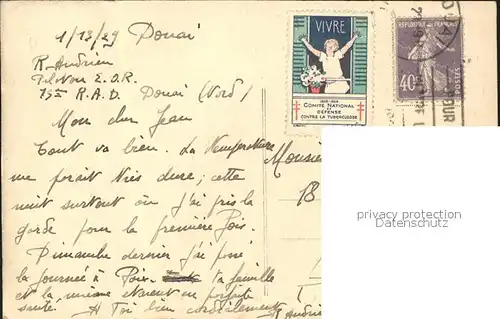 1/13/29 Douai
R. Andrieu
Peloton E.O.R.
15me R.A.D. Douai (Nord)
Mon cher Jean
Tout va bien. La Température
me paraît très dure; cette
nuit surtout où j'ai pris la
garde pour la première fois.
Dimanche dernier j'ai passé
la journée à Poix. ta famille
et la mienne étaient en parfaite
santé. A Toi bien cordialement
R Andrieu
VIVRE
COMITÉ NATIONAL
DE
DÉFENSE
CONTRE LA TUBERCULOSE
REPUBLIQUE FRANÇAISE
40c
POSTES
DOUAI
Monsieur
18
privacy protection
Datenschutz